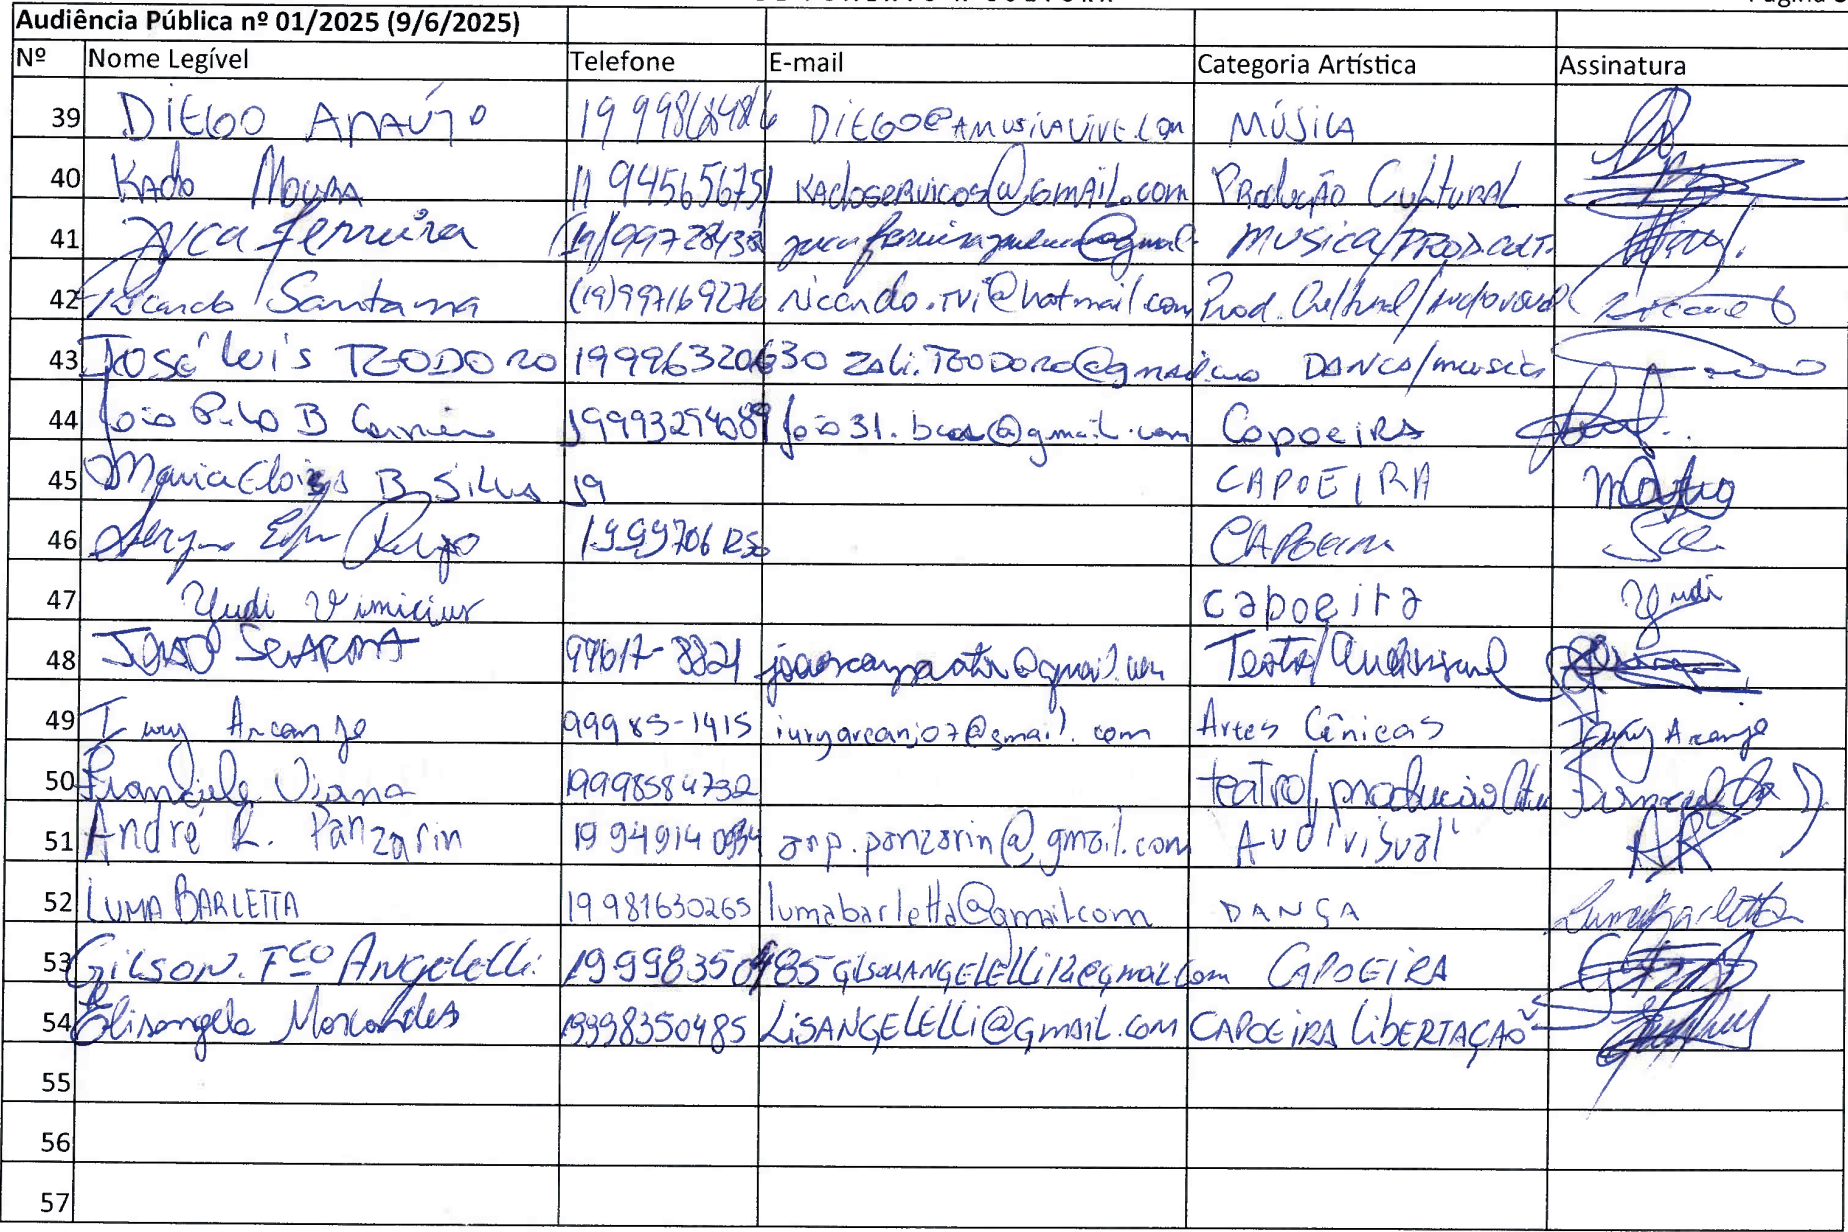 Audiência Pública nº 01/2025 (9/6/2025)
Nº Nome Legível Telefone E-mail Categoria Artística Assinatura
39 DIEGO ARAÚJO DIEGO@AMUSICAVIVE.COM MÚSICA
40 Kado Moura 11 945656751 KADOSERVICOS@GMAIL.COM PRODUÇÃO CULTURAL
41 Juca Ferreira MUSICA/PROD.CULT.
42 Ricardo Santana (19)997169276 riccardo.rvi@hotmail.com Prod. Cultural/Audiovisual
43 José Luis TEODORO 19996320630 ZALi.TEODORO@gmail.com DANCA/musica
44 João B 19993294089 @gmail.com Capoeira
45 Maria Eloisa B Silva 19 CAPOEIRA
46 CAPOEIRA
47 Yudi Vinicius capoeira Yudi
48 JOÃO SCARPA 99617-8821 Teatro/Audiovisual
49 Iury Arcanjo 99985-1415 iuryarcanjo7@gmail.com Artes Cênicas Iury Arcanjo
50 Franciele Viana 19998584732 teatro/produção
51 André R. Panzarin 19 94914 0934 arp.panzarin@gmail.com Audivisual
52 LUMA BARLETTA 19 981630265 lumabarletta@gmail.com DANÇA Luma Barletta
53 GiLSON. Fco ANGELELLi 19998350485 CAPOEiRA
54 Elisangela 19998350485 LiSANGELELLi@GMAIL.COM CAPOEiRA LiBERTAÇÃO
55
56
57